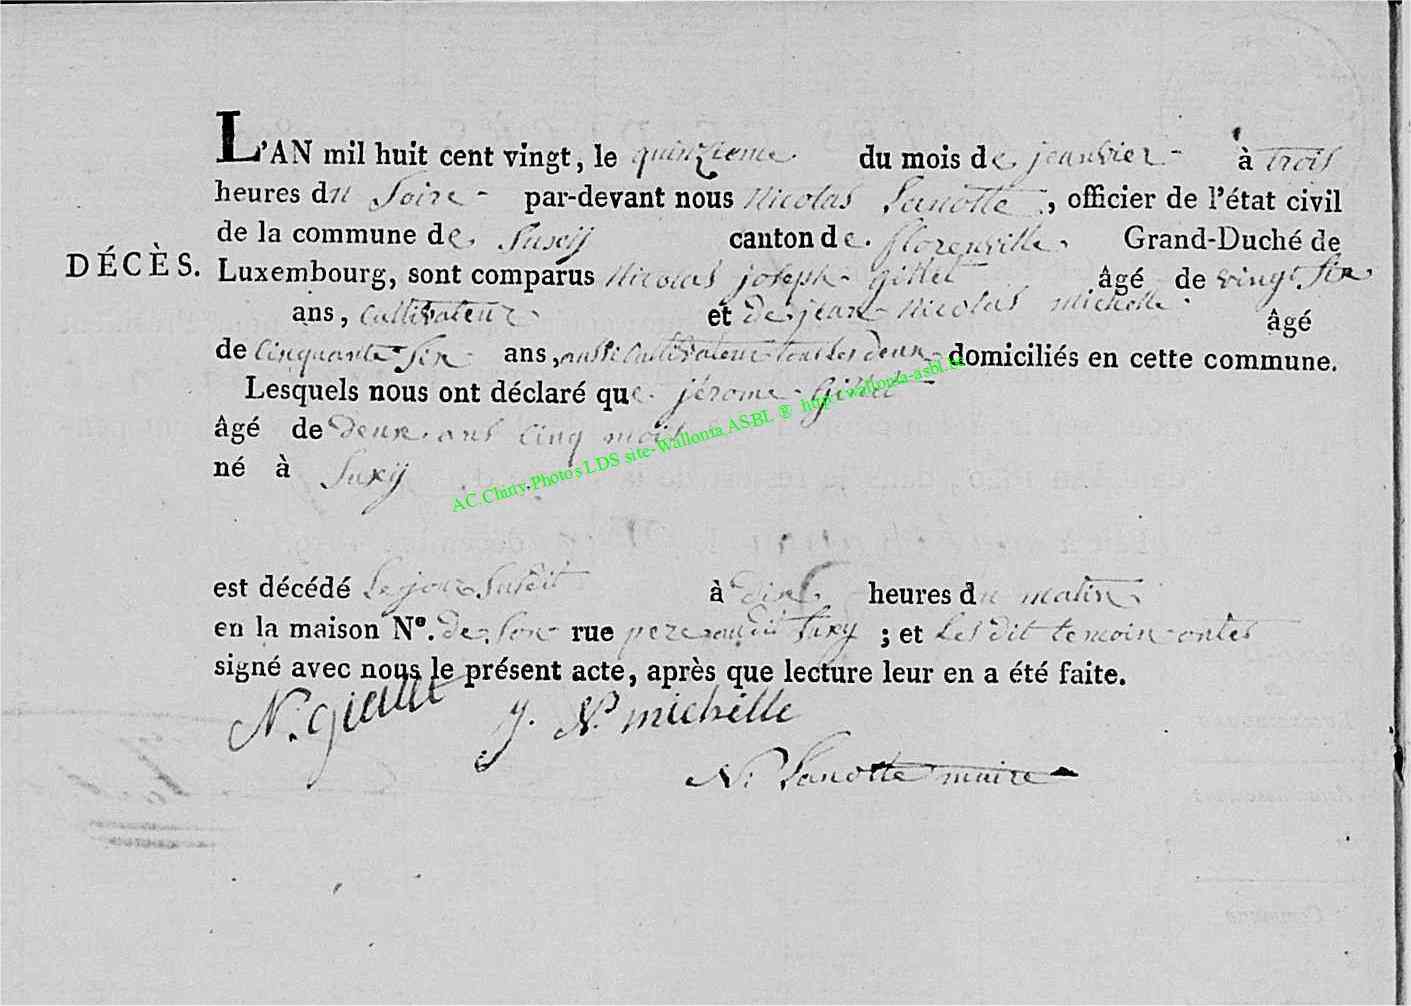 L'AN mil huit cent vingt, le quinzieme du mois de jeanvier à trois
heures du Soire par-devant nous Nicolas Lanotte, officier de l'état civil
de la commune de Suxij canton de florenville. Grand-Duché de
DÉCÈS.
Luxembourg, sont comparus Nicolas joseph Gillet âgé de vingt six
ans, Cultivateur et de jean Nicolas michelle âgé
de Cinquante Six ans, aussi Cultivateur tout les deux domiciliés en cette commune.
Lesquels nous ont déclaré que jérome Gillet
âgé de deux ans cinq mois
né à Suxij
AC.Chiny.Photos LDS site-Wallonia ASBL ® http://wallonia-asbl.be
est décédé Le jour Susdit à dix heures du matin
en la maison N°. de Son rue pere audit Suxy ; et Les dit temoin ontes
signé avec nous le présent acte, après que lecture leur en a été faite.
N. Gillet J. N. michelle
N. Lanotte maire